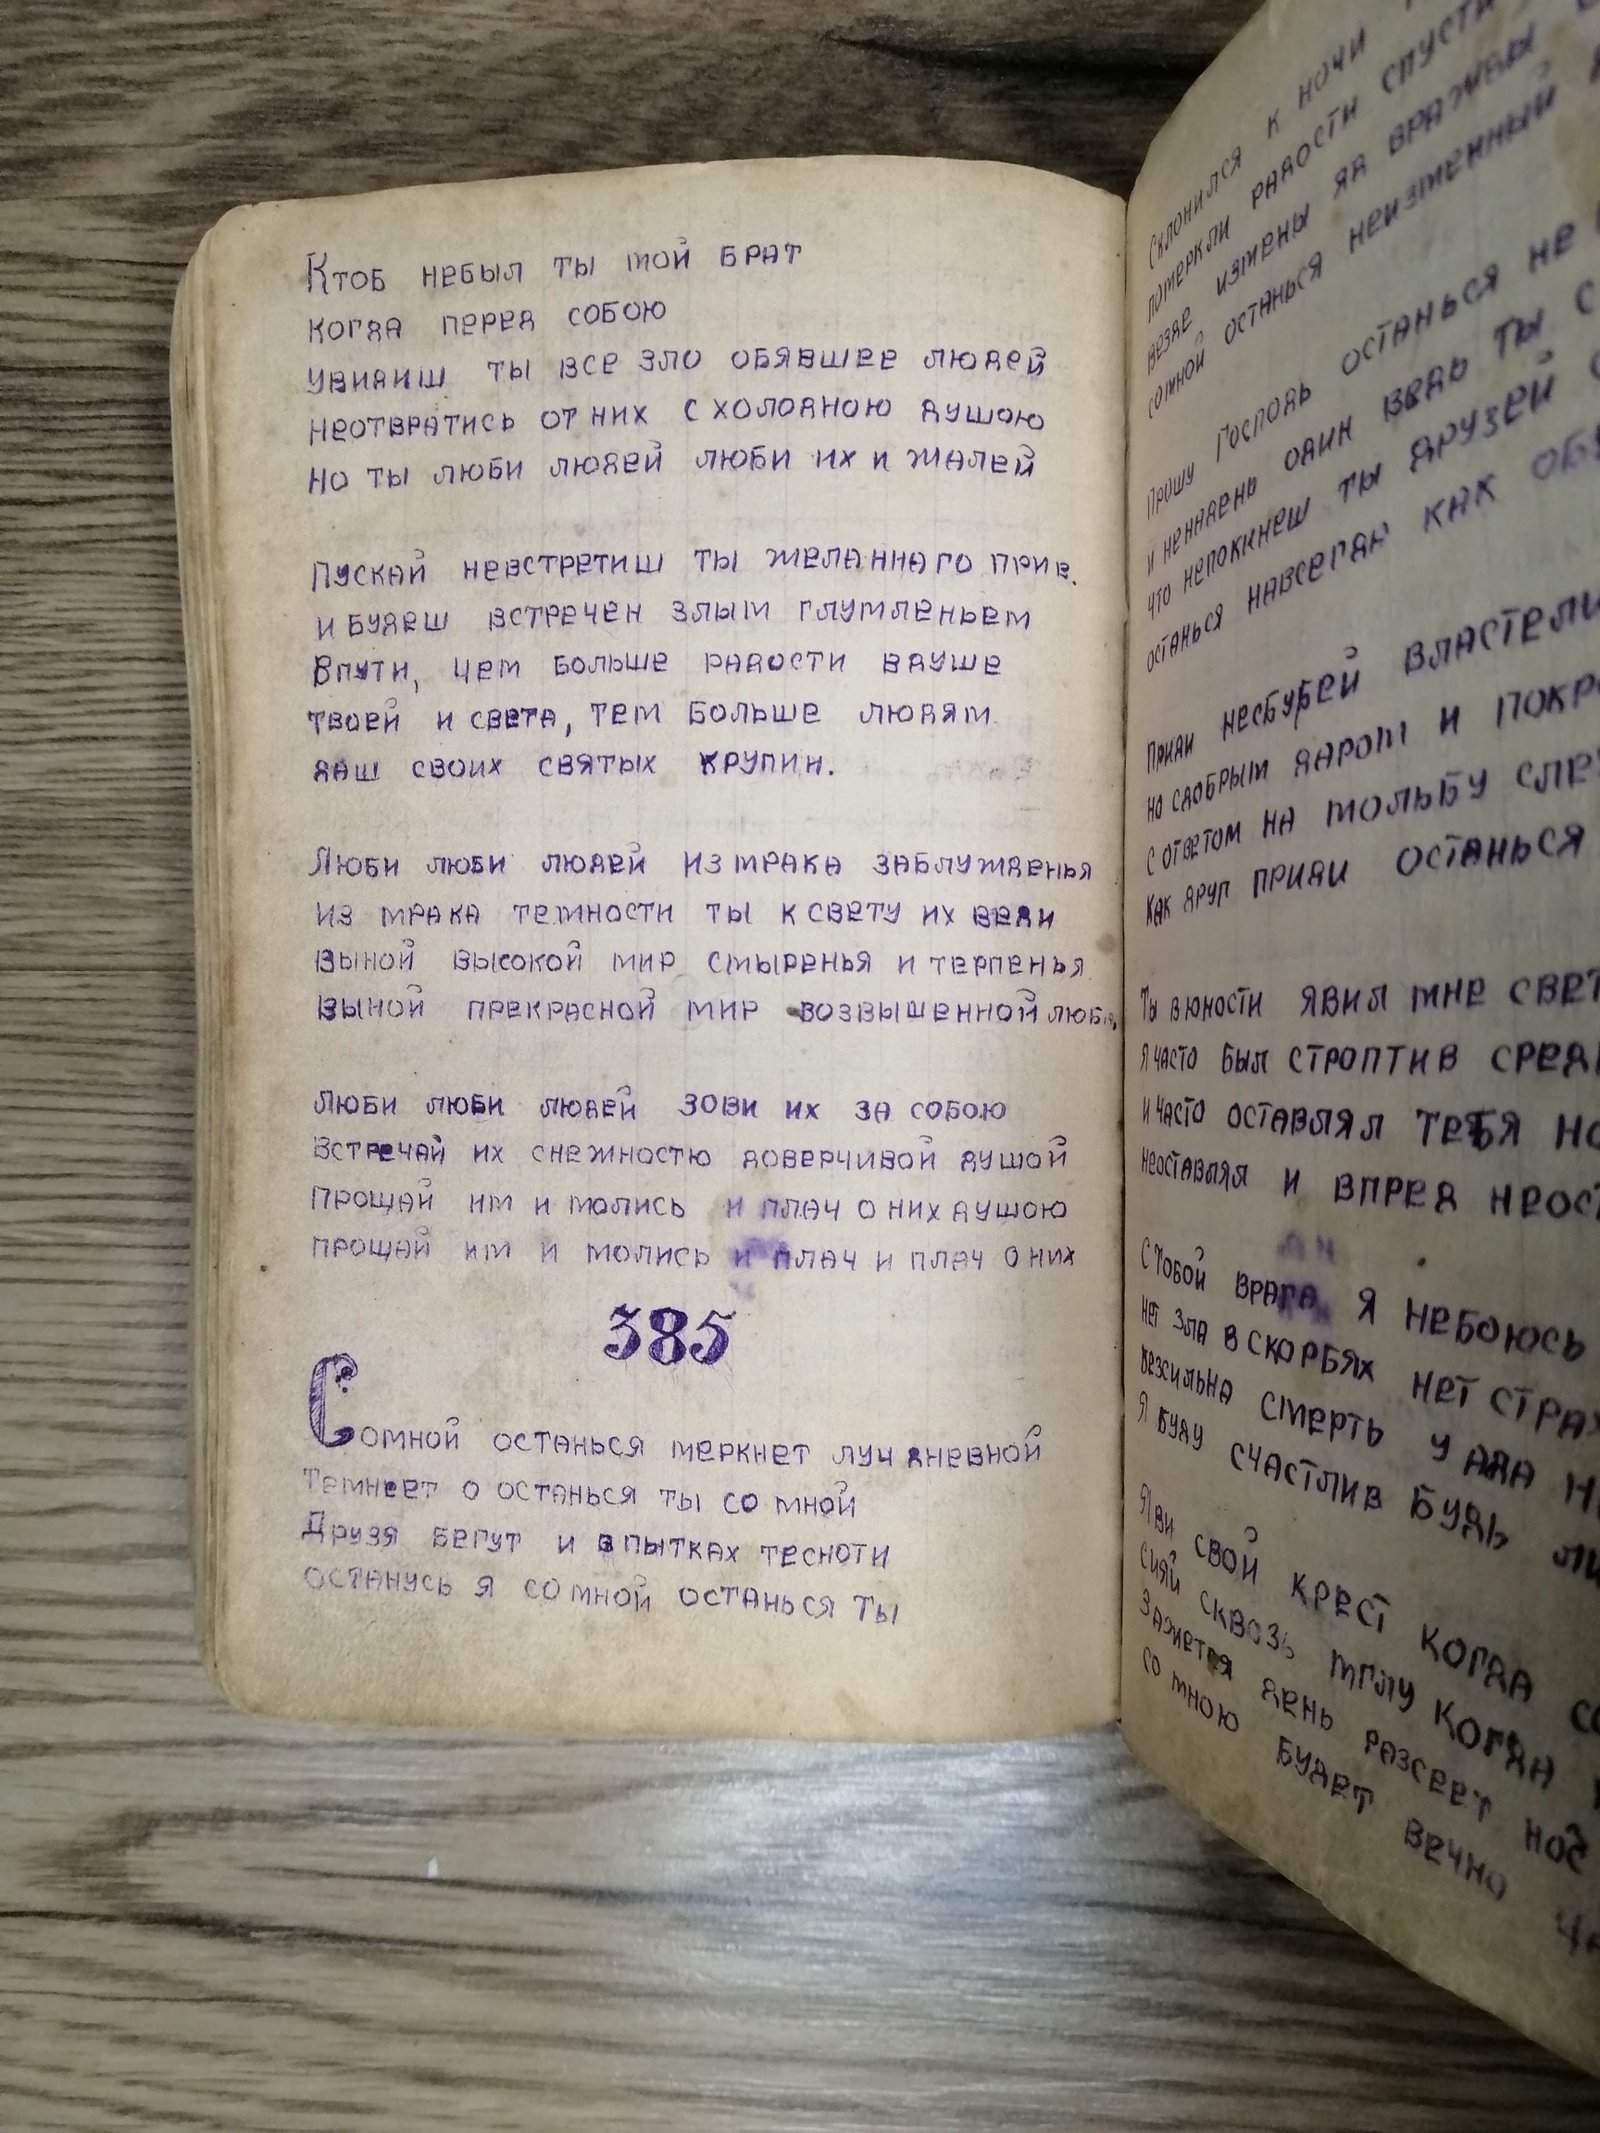 Ктоб небыл ты мой брат
когда перед собою
увидиш ты все зло обявшее людей
неотвратись от них с холодною душою
но ты люби людей люби их и жалей
Пускай невстретиш ты желаннаго прив.
и будеш встречен злым глумленьем
Впути, чем больше радости вдуше
твоей и света, тем больше людям
даш своих святых крупин.
Люби люби людей из мрака заблужденья
из мрака темности ты к свету их веди
выной высокой мир смыренья и терпенья
выной прекрасной мир возвышенной любви
Люби люби людей зови их за собою
Встречай их снежностю доверчивой душой
Прощай им и молись и плач о них душою
прощай им и молись и плач и плач о них
385
Сомной останься меркнет луч дневной
Темнеет о останься ты со мной
Друзя бегут и впытках тесноти
останусь я со мной останься ты
Склонился к ночи
померкли радости спусти
везде измены да вражды
сомной останься неизменный
Прошу Господь останься не
и ненадень один ведь ты с
что непокинеш ты друзей
останься навсегда как
Приди несбурей властели
но сдобрым даром и покро
с ответом на мольбу сле
Как друг приди останься
Ты в юности явил мне свет
я часто был строптив сред
и часто оставлял тебя но
неоставлял и впред неост
С тобой врага я небоюсь
нет зла в скорбях нет страх
безсильна смерть у ада н
Я буду счастлив будь ли
Яви свой крест когда со
сияй сквозь мглу когда
Зажется день разсеет
со мною будет вечно